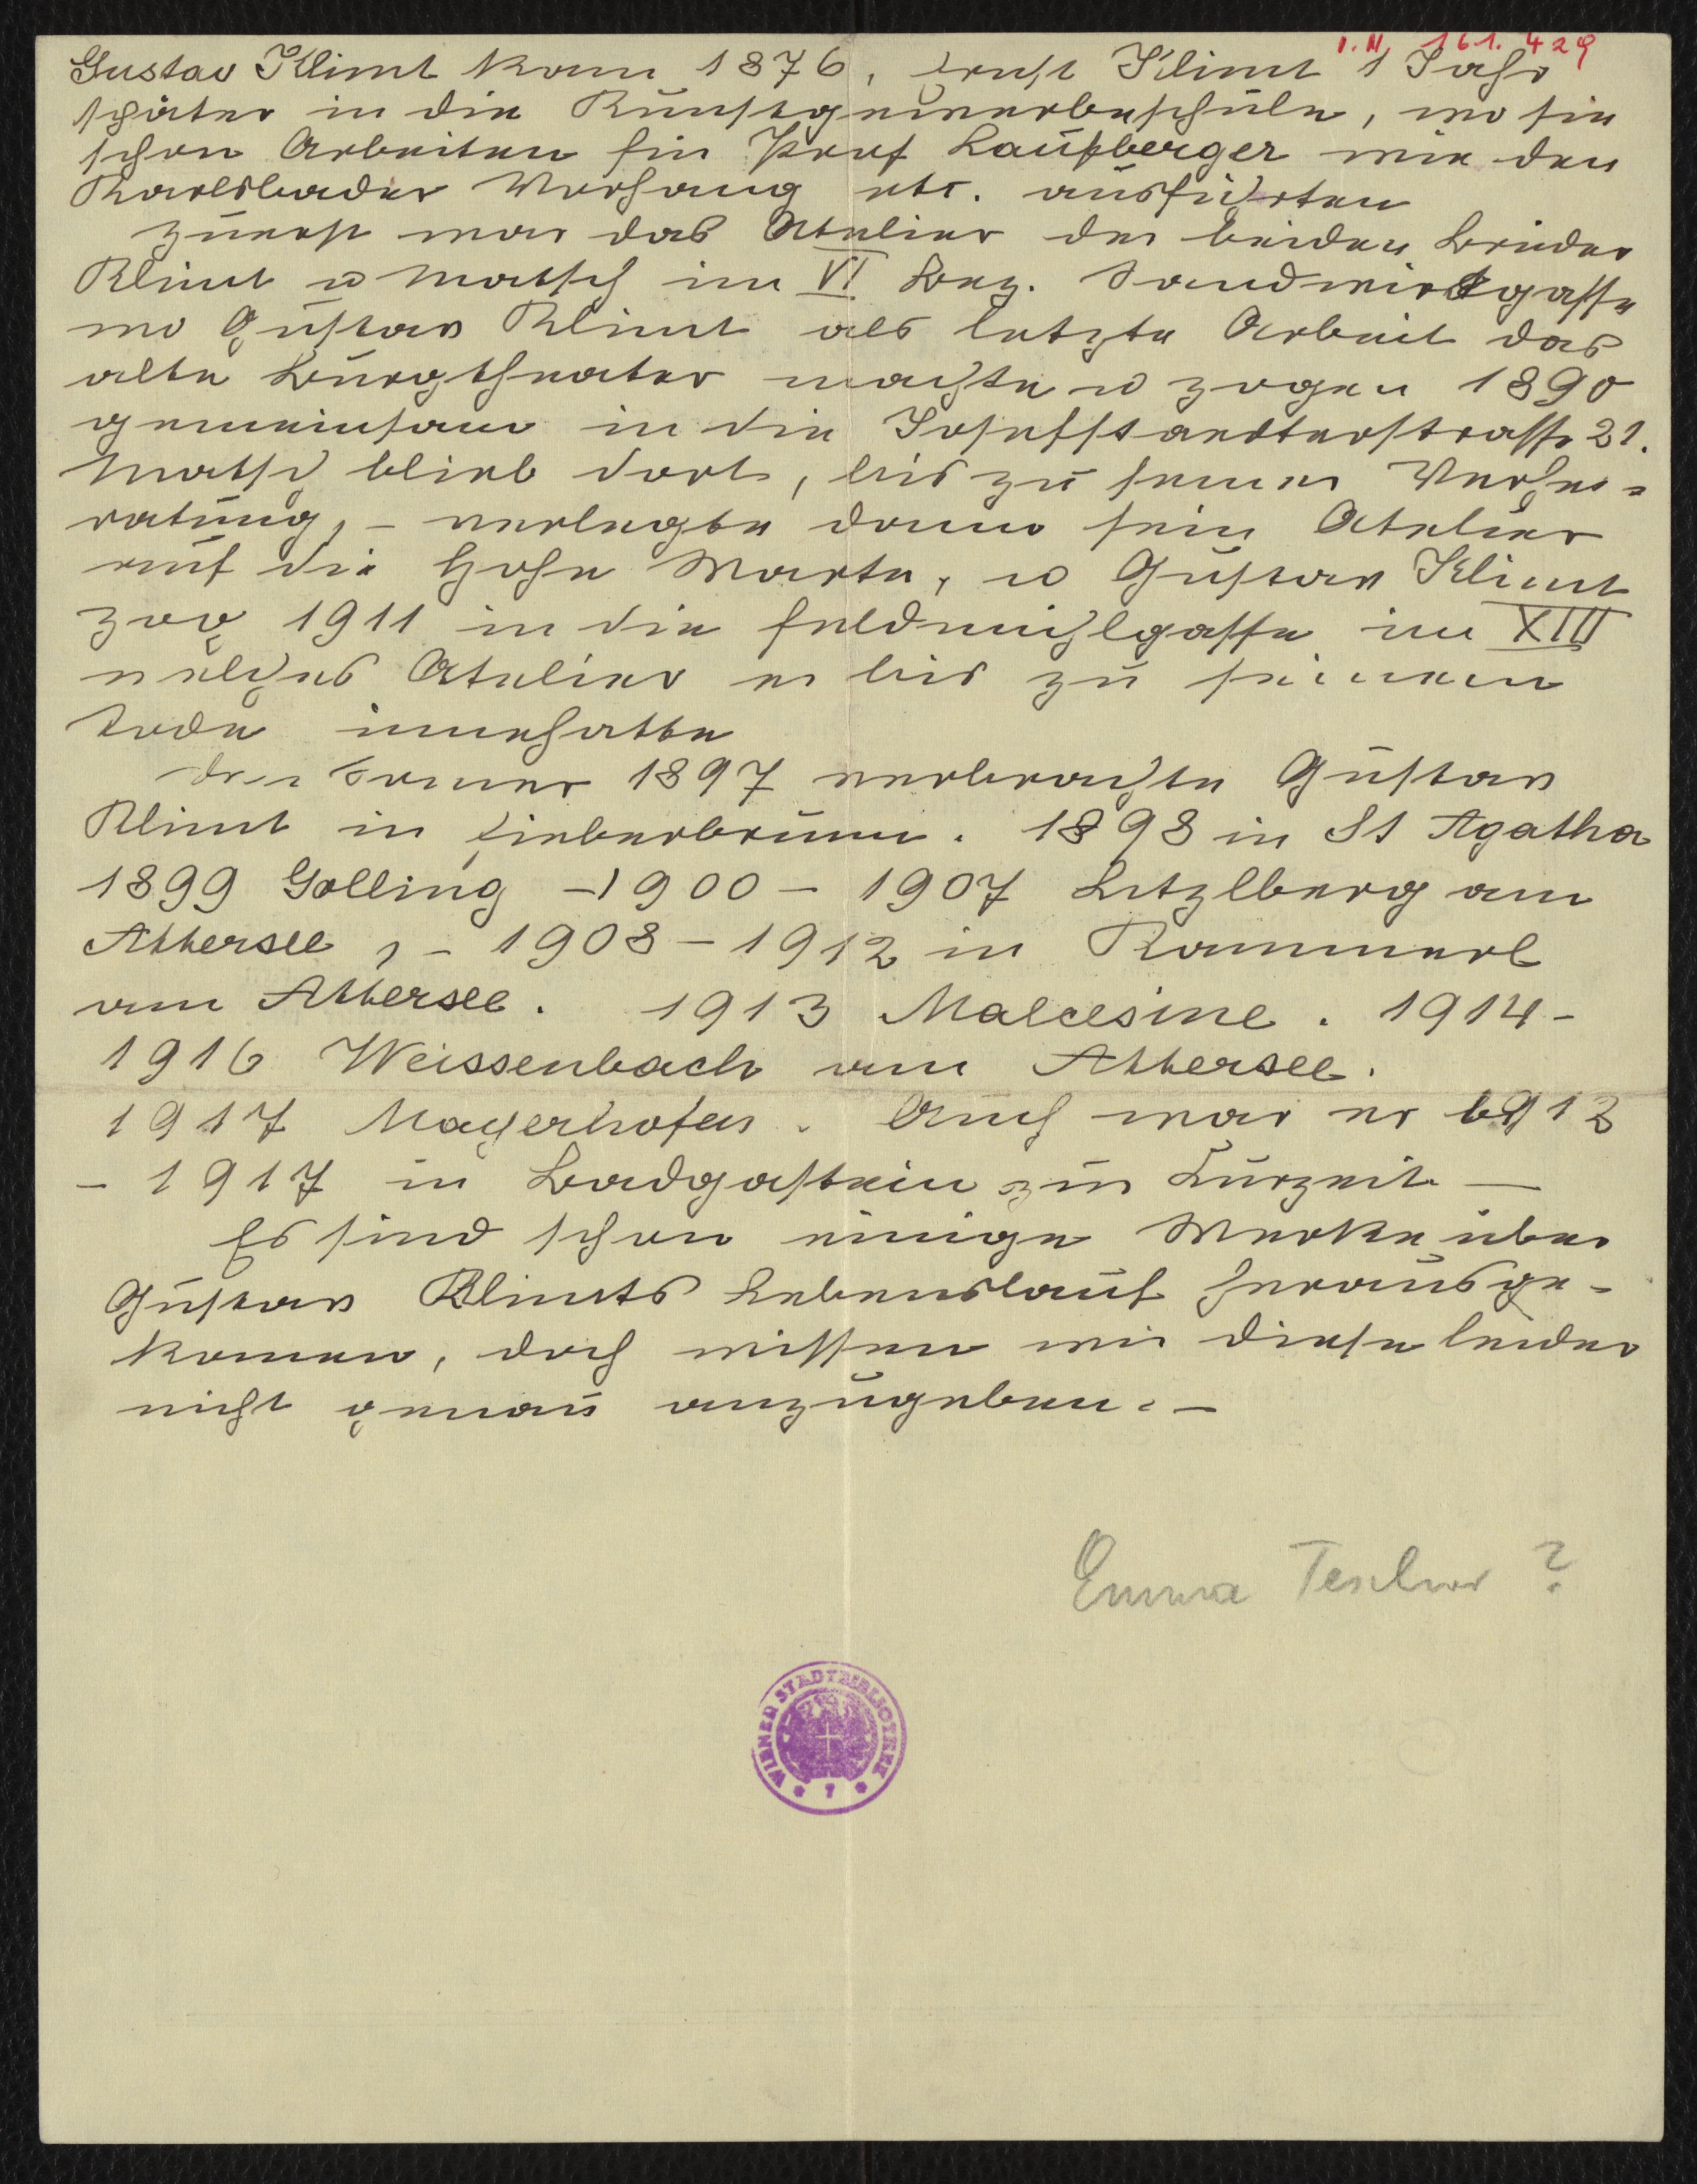 I.N. 161.429
Gustav Klimt kam 1876, Ernst Klimt 1 Jahr
später in die Kunstgewerbeschule, wo sie
schon Arbeiten für Prof Laufberger wie den
Karlsbader Vorhang etc. ausführten
Zuerst war das Atelier der beiden Brüder
Klimt u Matsch im VI Bez. Sandwirtgasse
wo Gustav Klimt als letzte Arbeit das
alte Burgtheater machte u zogen 1890
gemeinsam in die Josefstaedterstrasse 21.
Matsch blieb dort, bis zu seiner Verhei=
ratung, – verlegte dann sein Atelier
auf die Hohe Warte, u Gustav Klimt
zog 1911 in die Feldmühlgasse im XIII
welches Atelier er bis zu seinem
Tode innehatte
Den Sommer 1897 verbrachte Gustav
Klimt in Fieberbrunn. 1898 in St Agatha
1899 Golling – 1900 – 1907 Litzlberg am
Attersee, – 1908 – 1912 in Kammerl
am Attersee. 1913 Malcesine. 1914 –
1916 Weissenbach am Attersee.
1917 Mayerhofen. Auch war er 1912
– 1917 in Badgastein zur Kurzeit –
Es sind schon einige Werke über
Gustav Klimts Lebenslauf herausge-
kommen, doch wissen wir diese leider
nicht genau anzugeben. –
Emma Teschner ?
WIENER STADTBIBLIOTHEK